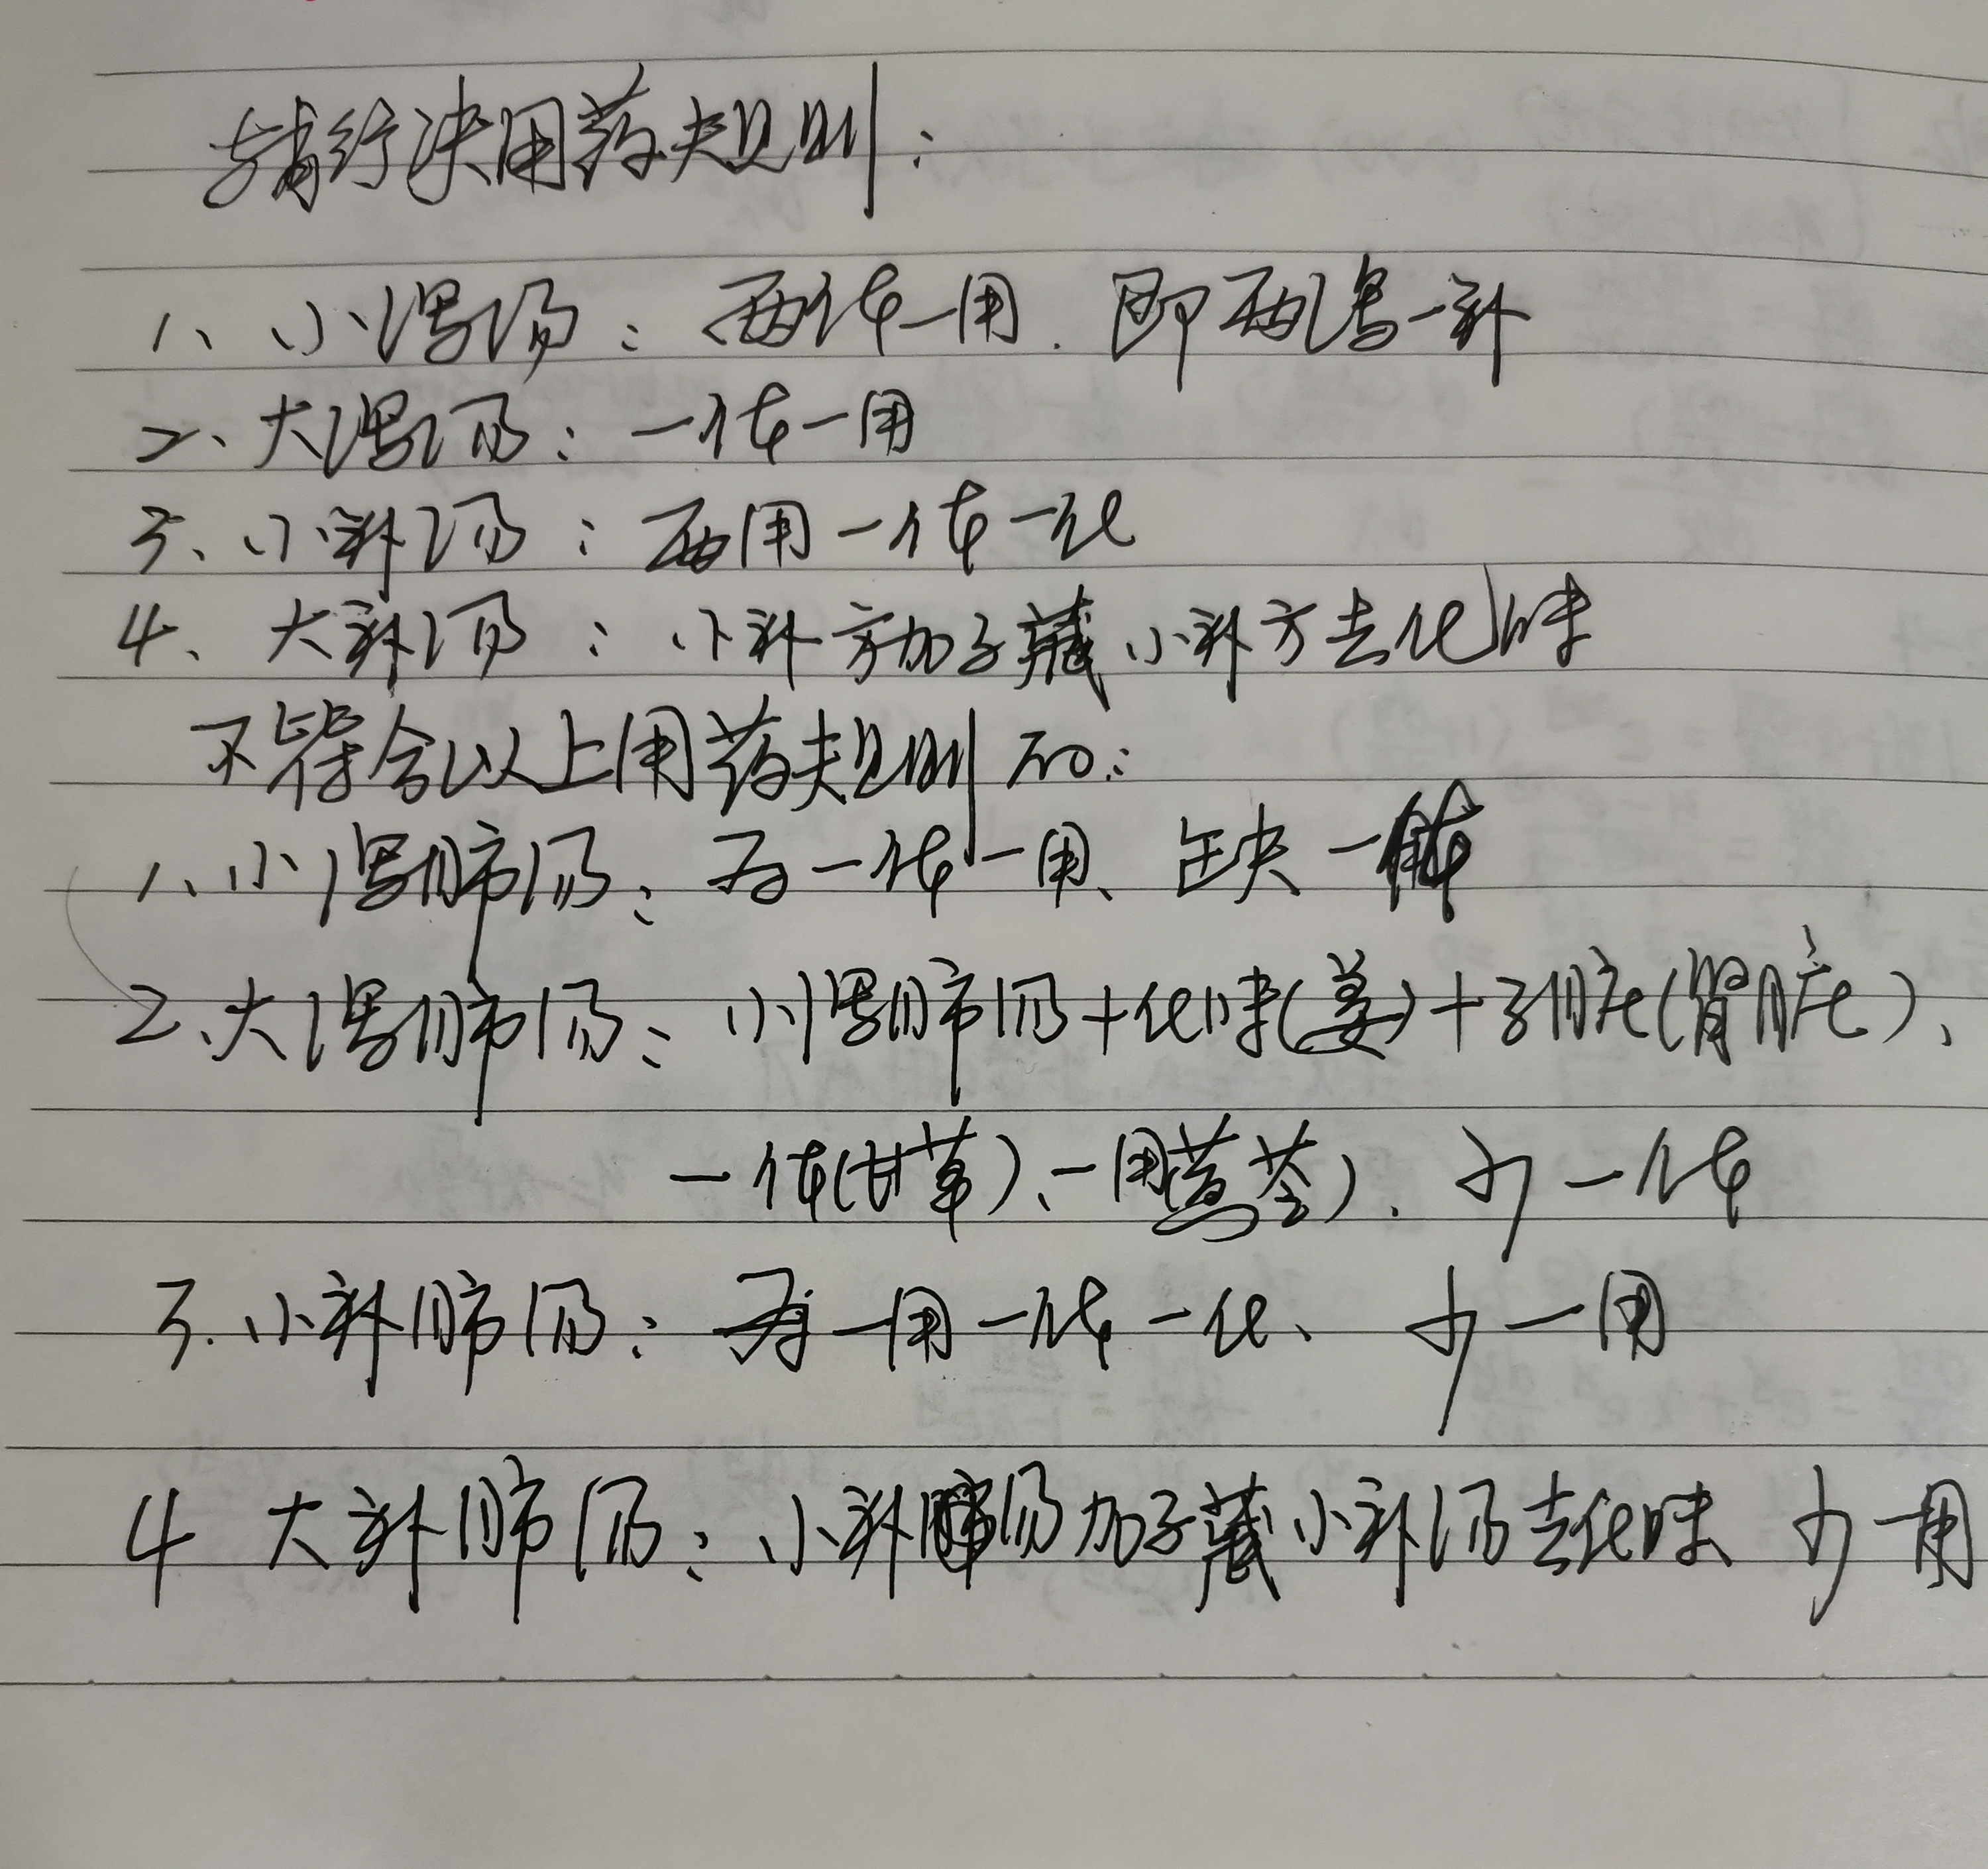 辅行决用药规则：
1、小泻汤：两体一用.即两泻一补
2、大泻汤：一体一用
3、小补汤：两用一体一化
4、大补汤：小补方加子藏小补方去化味
不符合以上用药规则的：
1、小泻肺汤：为一体一用、缺一体
2、大泻肺汤：小泻肺汤+化味(姜)+子脏(肾脏)、
一体(甘草)、一用(黄芩).少一体
3.小补肺汤：为一用一体一化、少一用
4 大补肺汤：小补肺汤加子藏小补汤去化味 少一用